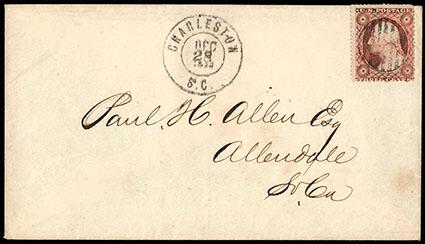 CHARLESTON
DEC
S.C.
U.S. POSTAGE
Paul H. Allen Esq
Allendale
So Ca